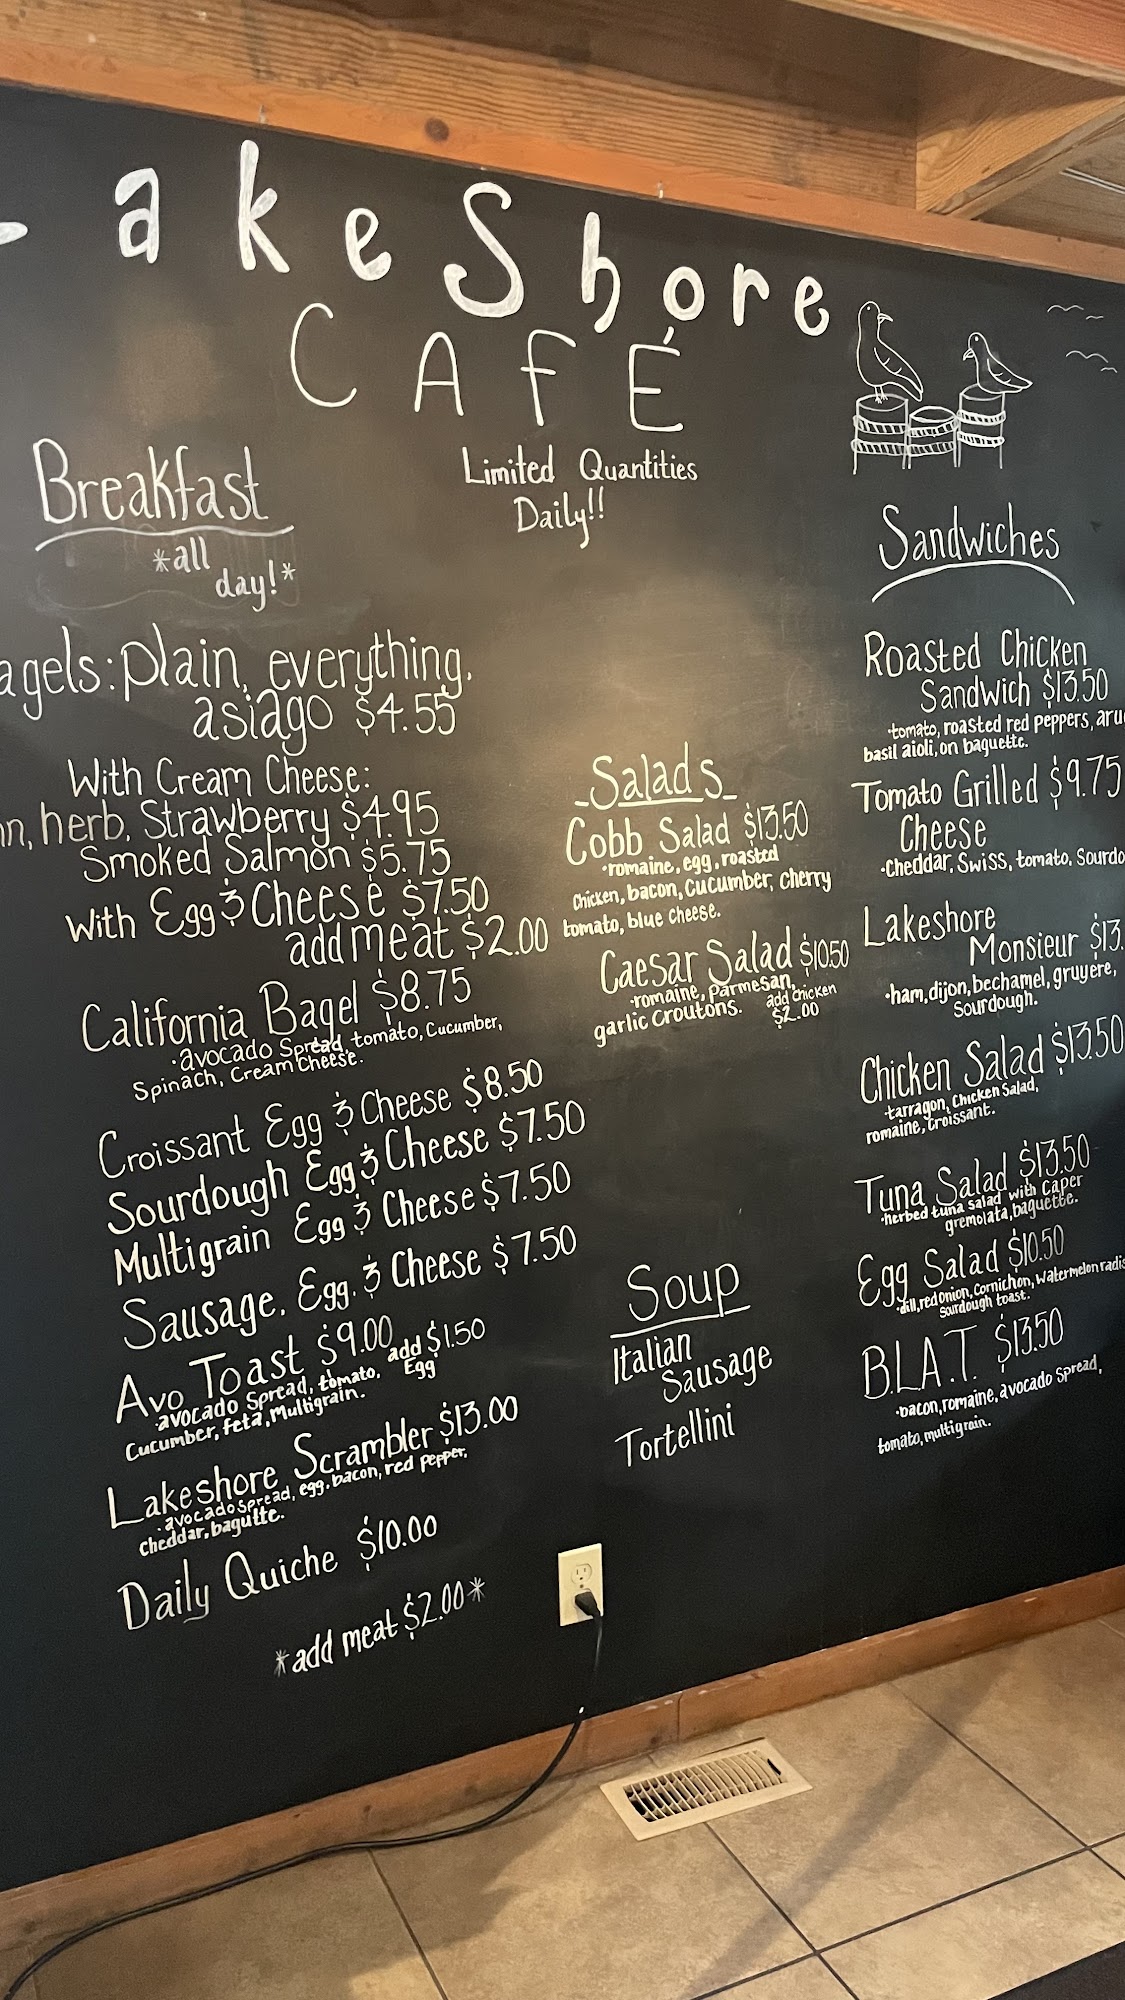 LakeShore
CAFÉ
Limited Quantities
Daily!!
Breakfast
*all
day!*
agels: plain, everything,
asiago $4.55
With Cream Cheese:
herb, Strawberry $4.95
Smoked Salmon $5.75
With Egg & Cheese $7.50
add meat $2.00
California Bagel $8.75
·avocado Spread, tomato, Cucumber,
Spinach, Cream Cheese.
Croissant Egg & Cheese $8.50
Sourdough Egg & Cheese $7.50
Multigrain Egg & Cheese $7.50
Sausage, Egg, & Cheese $7.50
Avo Toast $9.00 add $1.50
Egg
·avocado Spread, tomato,
Cucumber, feta, Multigrain.
Lakeshore Scrambler $13.00
·avocado spread, egg, bacon, red pepper,
cheddar, bagutte.
Daily Quiche $10.00
*add meat $2.00*
Salads
Cobb Salad $13.50
·romaine, egg, roasted
chicken, bacon, cucumber, cherry
tomato, blue cheese.
Caesar Salad $10.50
·romaine, parmesan,
garlic croutons.
add chicken
$2.00
Soup
Italian
Sausage
Tortellini
Sandwiches
Roasted Chicken
Sandwich $13.50
·tomato, roasted red peppers, aru
basil aioli, on baguette.
Tomato Grilled $9.75
Cheese
·cheddar, Swiss, tomato, Sourdo
Lakeshore
Monsieur $13.
·ham, dijon, bechamel, gruyere,
Sourdough.
Chicken Salad $13.50
·tarragon, Chicken Salad,
romaine, croissant.
Tuna Salad $13.50
·herbed tuna salad with caper
gremolata, baguette.
Egg Salad $10.50
·dill, red onion, cornichon, watermelon radis
sourdough toast.
B.L.A.T. $13.50
·bacon, romaine, avocado spread,
tomato, multigrain.